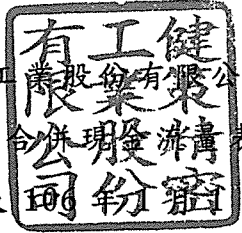 健策精密
工業股份
有限公司
工業股份有限公
合併現金流量表
106 年 1